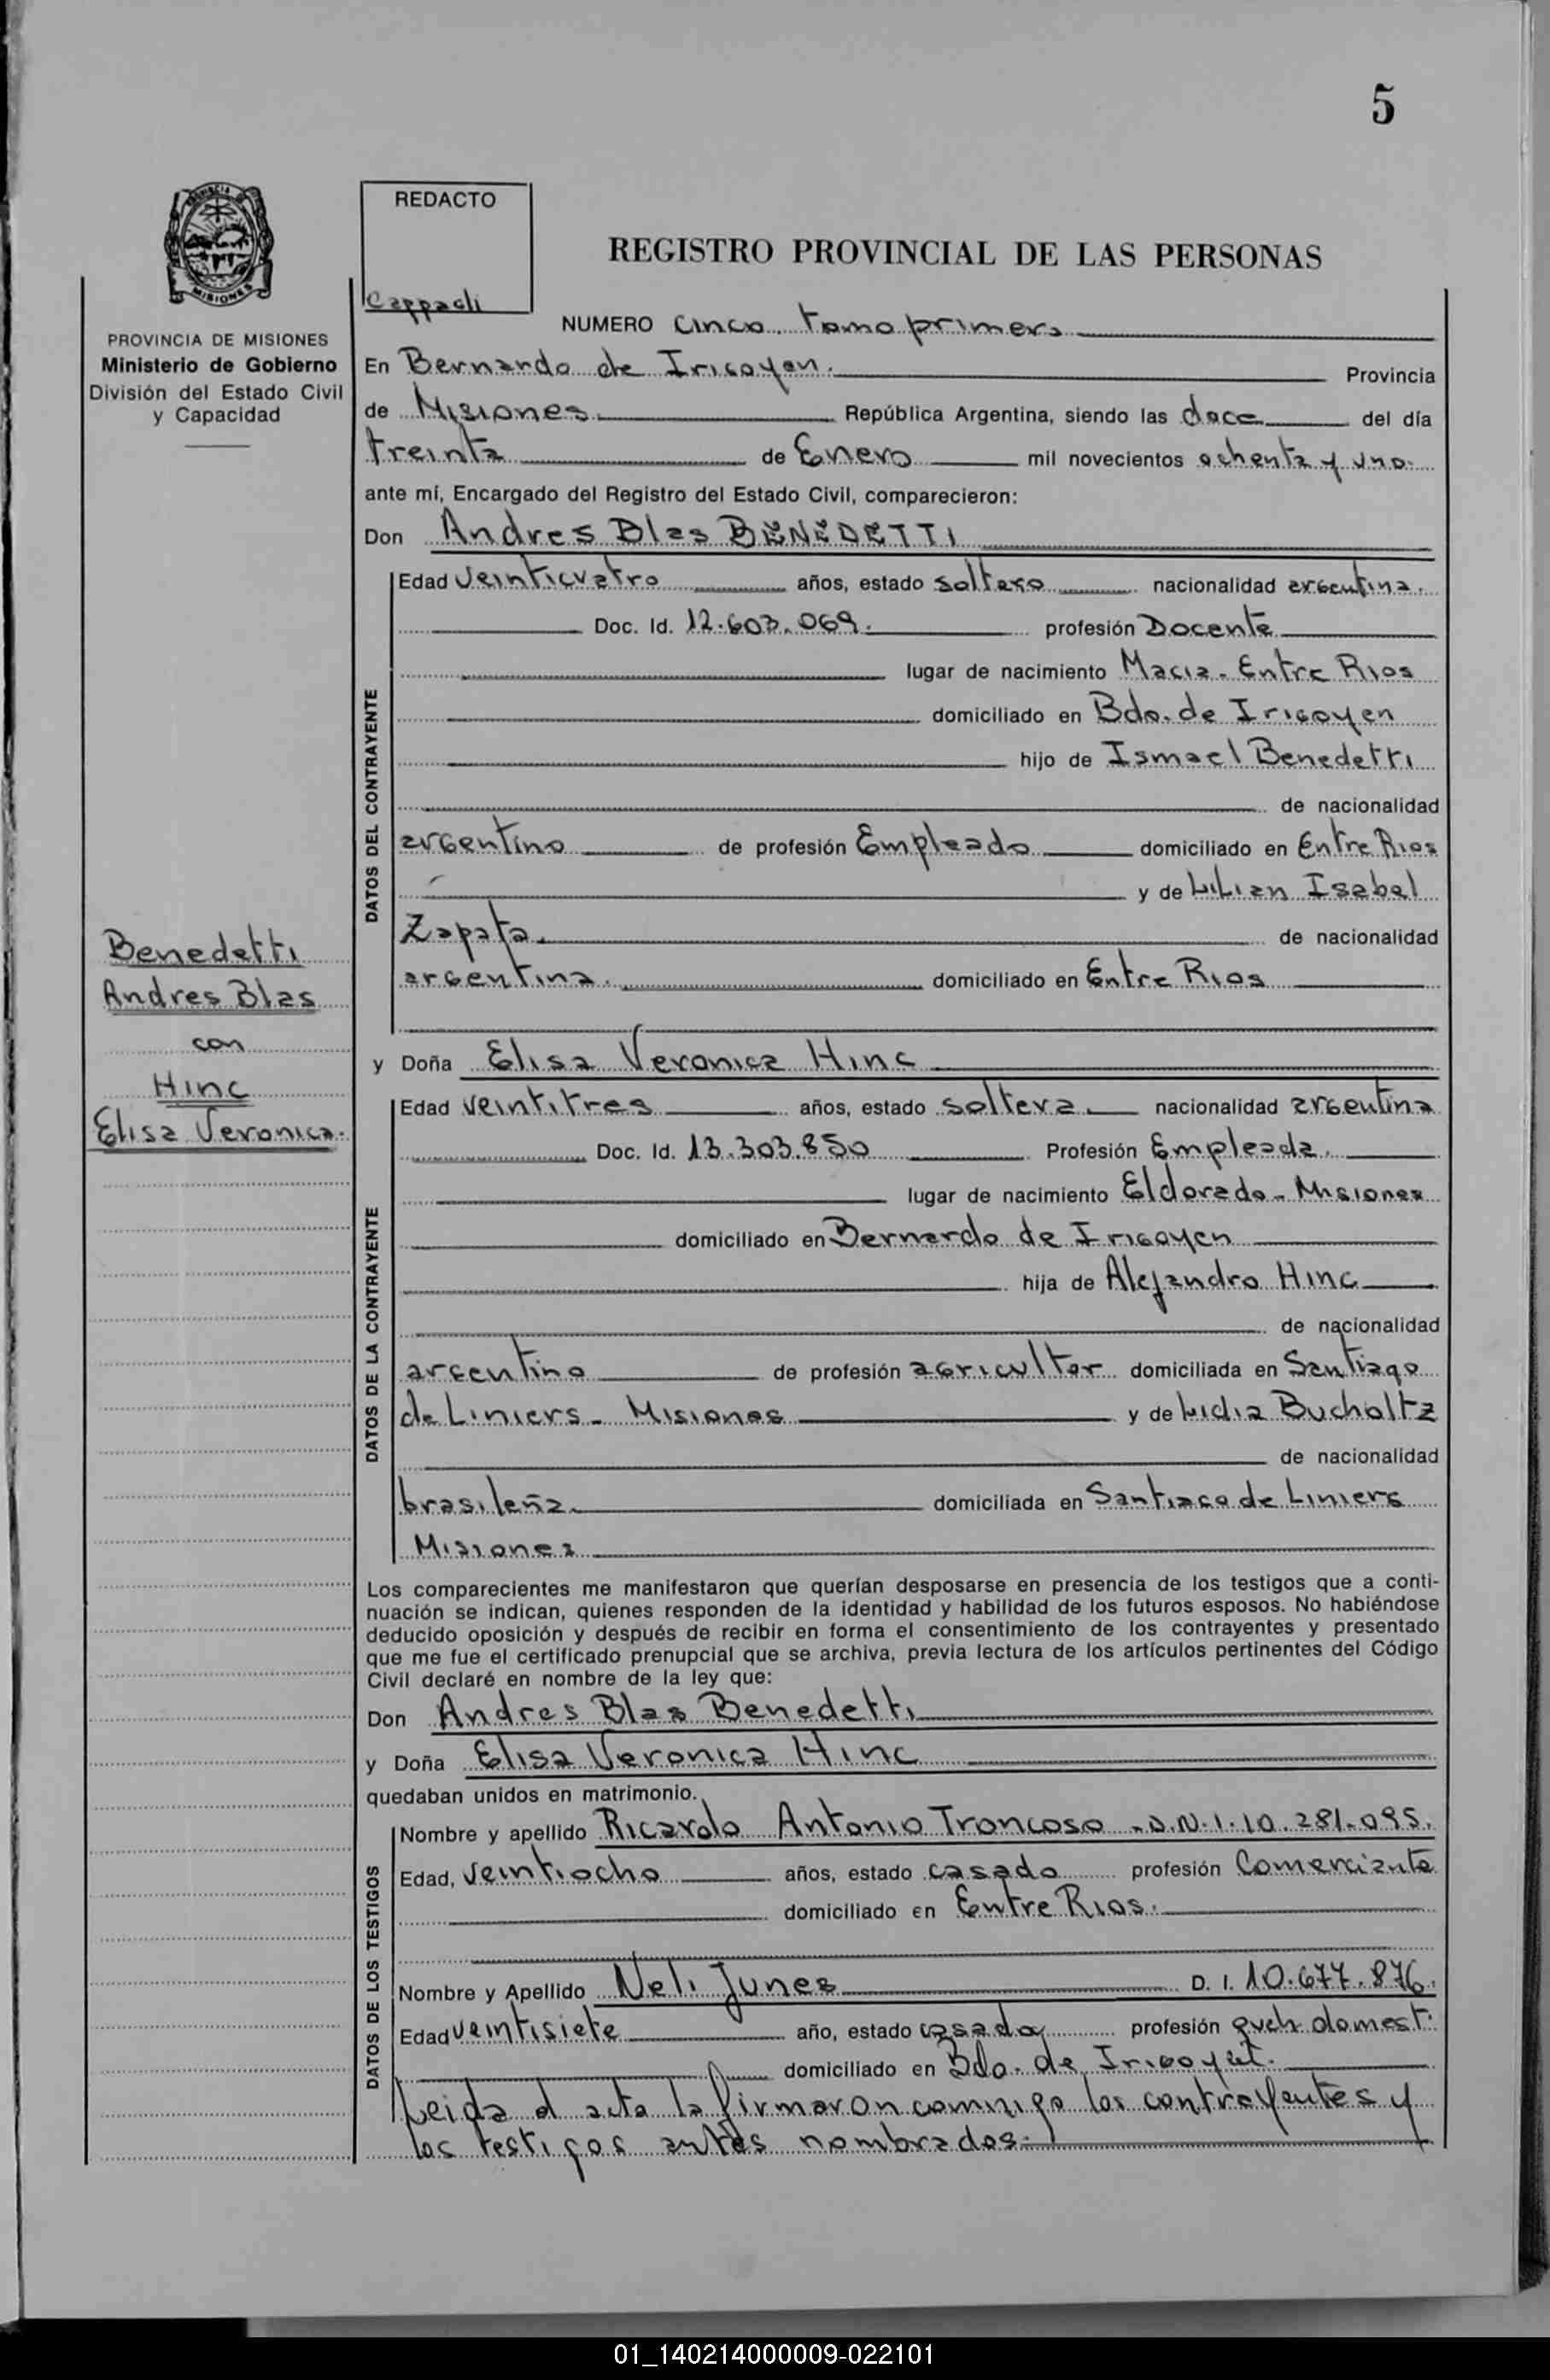 5
REDACTO
MISIONES
REGISTRO PROVINCIAL DE LAS PERSONAS
PROVINCIA DE MISIONES
Ministerio de Gobierno
División del Estado Civil
y Capacidad
NUMERO cinco. tomo primero
En Bernardo de Irigoyen. Provincia
de Misiones República Argentina, siendo las doce del día
treinta de Enero mil novecientos ochenta y uno.
ante mí, Encargado del Registro del Estado Civil, comparecieron:
Don Andres Blas BENEDETTI
DATOS DEL CONTRAYENTE
Edad veinticuatro años, estado soltero nacionalidad argentina.
Doc. Id. 12.603.069. profesión Docente
lugar de nacimiento Macia - Entre Rios
domiciliado en Bdo. de Irigoyen
hijo de Ismael Benedetti
de nacionalidad
argentino de profesión Empleado domiciliado en Entre Rios
y de Lilian Isabel
Zapata. de nacionalidad
argentina. domiciliado en Entre Rios
Benedetti
Andres Blas
con
Hinc
Elisa Veronica.
y Doña Elisa Veronica Hinc
DATOS DE LA CONTRAYENTE
Edad veintitres años, estado soltera. nacionalidad argentina
Doc. Id. 13.303.850 Profesión Empleada.
lugar de nacimiento Eldorado - Misiones
domiciliado en Bernardo de Irigoyen
hija de Alejandro Hinc
de nacionalidad
argentino de profesión agricultor domiciliada en Santiago
de Liniers - Misiones y de Lidia Bucholtz
de nacionalidad
brasileña. domiciliada en Santiago de Liniers
Misiones
Los comparecientes me manifestaron que querían desposarse en presencia de los testigos que a conti-
nuación se indican, quienes responden de la identidad y habilidad de los futuros esposos. No habiéndose
deducido oposición y después de recibir en forma el consentimiento de los contrayentes y presentado
que me fue el certificado prenupcial que se archiva, previa lectura de los artículos pertinentes del Código
Civil declaré en nombre de la ley que:
Don Andres Blas Benedetti
y Doña Elisa Veronica Hinc
quedaban unidos en matrimonio.
DATOS DE LOS TESTIGOS
Nombre y apellido Ricardo Antonio Troncoso - D.N.I. 10.281.095.
Edad, veintiocho años, estado casado profesión Comerciante
domiciliado en Entre Rios.
Nombre y Apellido Neli Junes D. I. 10.677.876.
Edad veintisiete año, estado casada profesión queh domest.
domiciliado en Bdo. de Irigoyen.
Leida el acta la firmaron conmigo los contrayentes y
los testigos antes nombrados.
01_140214000009-022101